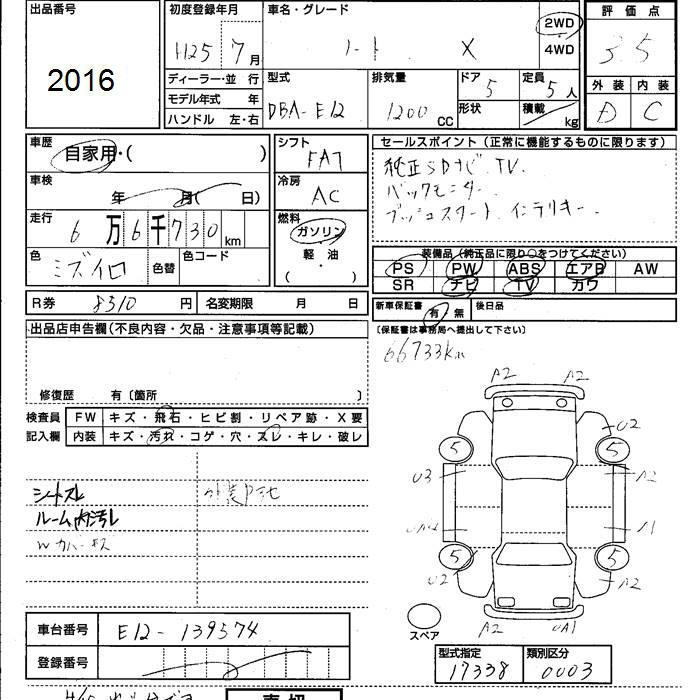 出品番号
2016
初度登録年月
H25 7月
ディーラー・並行
モデル年式 年
ハンドル 左・右
車名・グレード
ノート X
2WD
4WD
型式
DBA-E12
排気量
1200 CC
ドア
5
形状
定員
5人
積載 kg
評価点
3.5
外装 内装
D C
車歴
自家用・( )
車検
年 月( 日)
走行
6万6千730km
色
ミズイロ
色替
色コード
シフト
FAT
冷房
AC
燃料
ガソリン
軽・油
( )
セールスポイント(正常に機能するものに限ります)
純正SDナビ TV.
バックモニター
プッシュスタート. インテリキー
装備品(純正品に限り○をつけてください)
PS PW ABS エアB AW
SR ナビ TV カワ
R券 8310 円 名変期限 月 日
新車保証書 有 無 後日品
(保証書は事務局へ提出して下さい)
66733km
出品店申告欄(不良内容・欠品・注意事項等記載)
修復歴 有〔箇所 〕
検査員記入欄
FW キズ・飛石・ヒビ割・リペア跡・X要
内装 キズ・汚れ・コゲ・穴・スレ・キレ・破レ
シートスレ
ルーム内汚レ
Wカバーキズ
A2 A2
U2
5 5
U3 A2
A1
5 5
U2 A2
A2 UA1
スペア
車台番号 E12-139574
登録番号
型式指定 類別区分
17338 0003